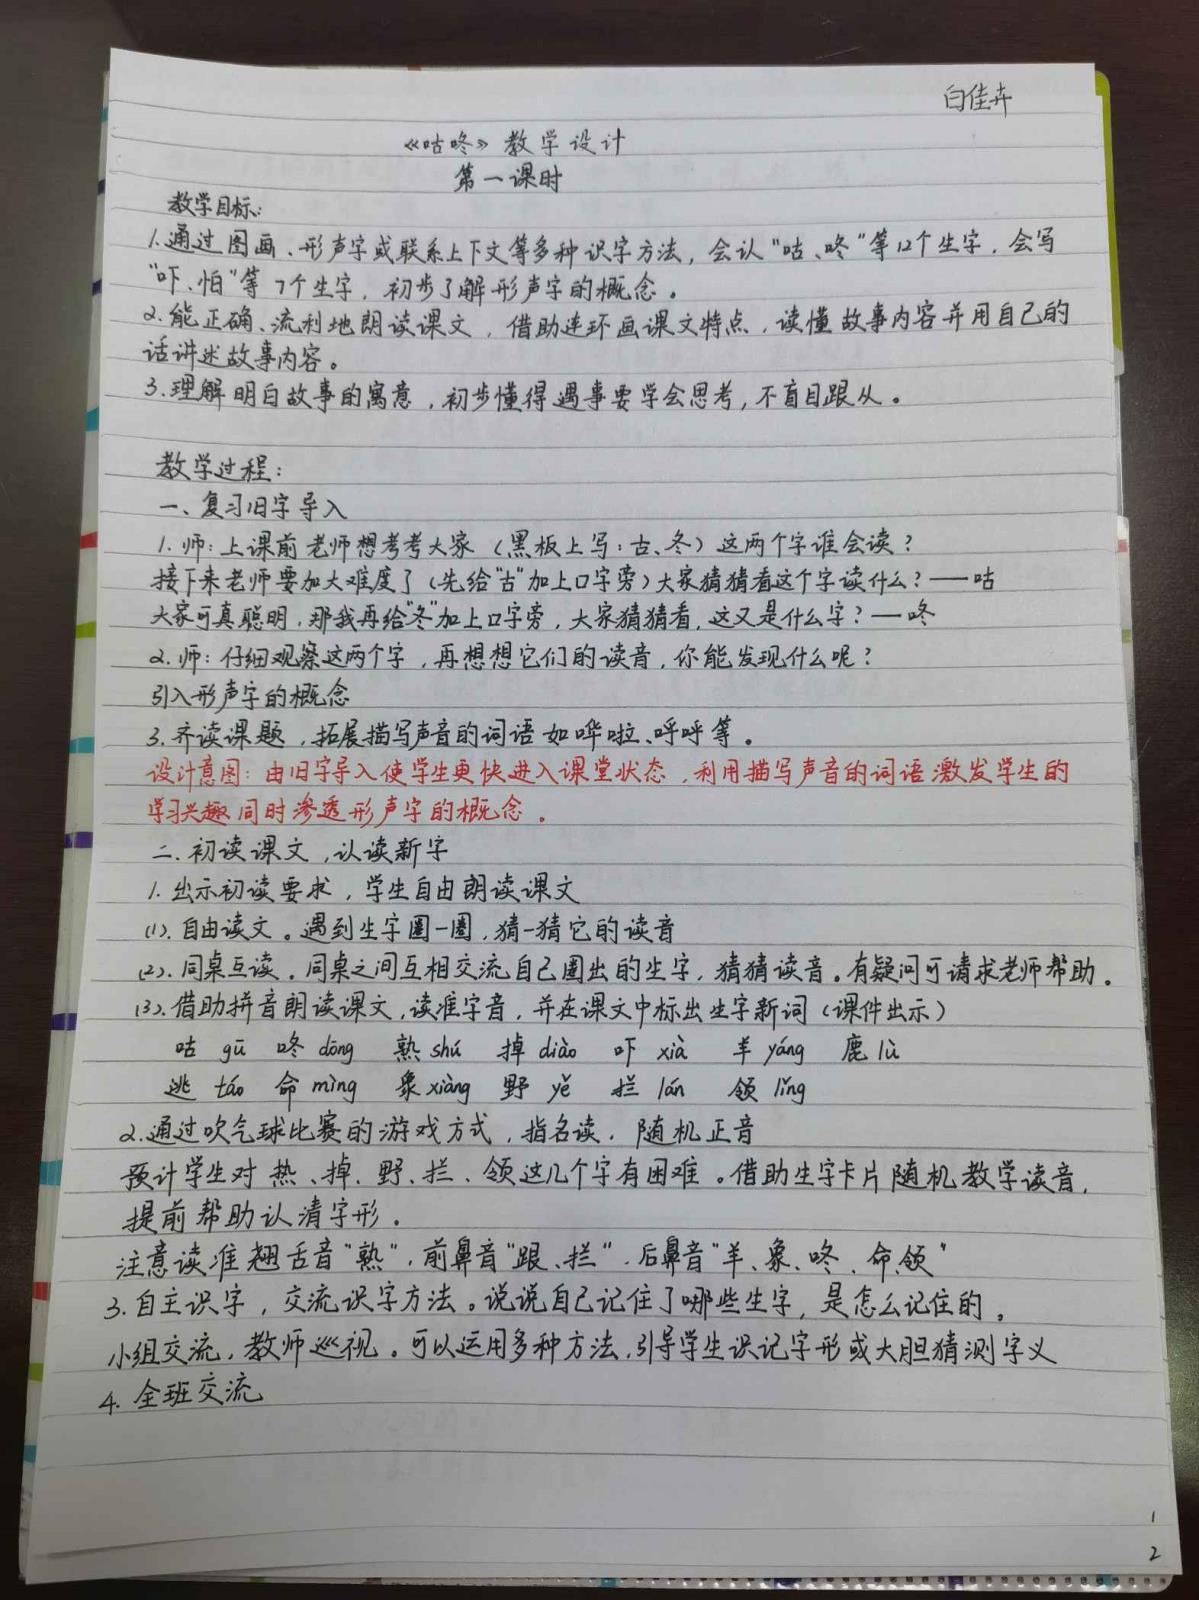 白佳卉
《咕咚》教学设计
第一课时
教学目标：
1.通过图画、形声字或联系上下文等多种识字方法，会认“咕、咚”等12个生字，会写
“吓、怕”等7个生字，初步了解形声字的概念。
2.能正确、流利地朗读课文，借助连环画课文特点，读懂故事内容并用自己的
话讲述故事内容。
3.理解明白故事的寓意，初步懂得遇事要学会思考，不盲目跟从。
教学过程：
一、复习旧字导入
1.师：上课前老师想考考大家（黑板上写：古、冬）这两个字谁会读？
接下来老师要加大难度了（先给“古”加上口字旁）大家猜猜看这个字读什么？——咕
大家可真聪明，那我再给“冬”加上口字旁，大家猜猜看，这又是什么字？—咚
2.师：仔细观察这两个字，再想想它们的读音，你能发现什么呢？
引入形声字的概念
3.齐读课题，拓展描写声音的词语如哗啦、呼呼等。
设计意图：由旧字导入使学生更快进入课堂状态，利用描写声音的词语激发学生的
学习兴趣同时渗透形声字的概念。
二.初读课文，认读新字
1.出示初读要求，学生自由朗读课文
(1).自由读文。遇到生字圈一圈，猜一猜它的读音
(2).同桌互读。同桌之间互相交流自己圈出的生字，猜猜读音。有疑问可请求老师帮助。
(3).借助拼音朗读课文，读准字音，并在课文中标出生字新词（课件出示）
咕 gū 咚 dōng 熟 shú 掉 diào 吓 xià 羊 yáng 鹿 lù
逃 táo 命 mìng 象 xiàng 野 yě 拦 lán 领 lǐng
2.通过吹气球比赛的游戏方式，指名读，随机正音
预计学生对热、掉、野、拦、领这几个字有困难。借助生字卡片随机教学读音，
提前帮助认清字形。
注意读准翘舌音“熟”，前鼻音“跟、拦”，后鼻音“羊、象、咚、命、领”
3.自主识字，交流识字方法。说说自己记住了哪些生字，是怎么记住的。
小组交流，教师巡视。可以运用多种方法，引导学生识记字形或大胆猜测字义
4.全班交流
1
2